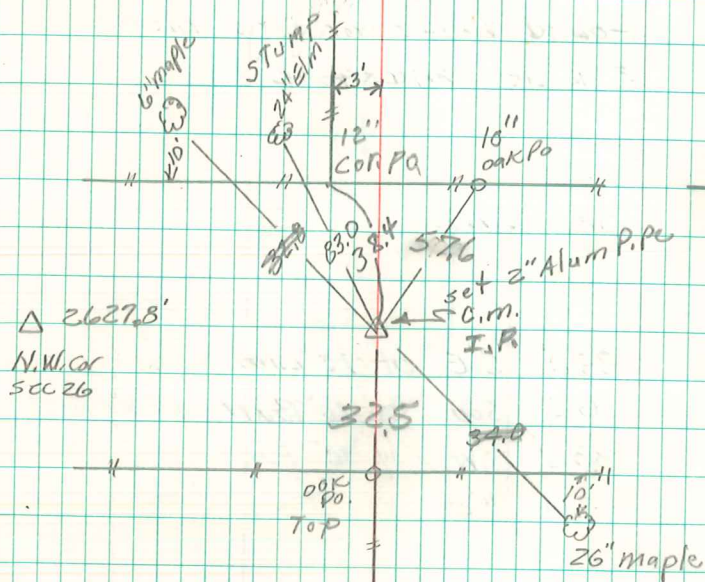 6" maple
10'
STUMP
24" Elm
3'
12"
Cor. Po
10"
oak Po
83.0
38.4
57.6
set 2" Alum P.pe
C.M.
I.P.
△ 2627.8'
N.W. Cor
Sec 26
32.5
34.0
oak
Po.
Top
10'
26" maple